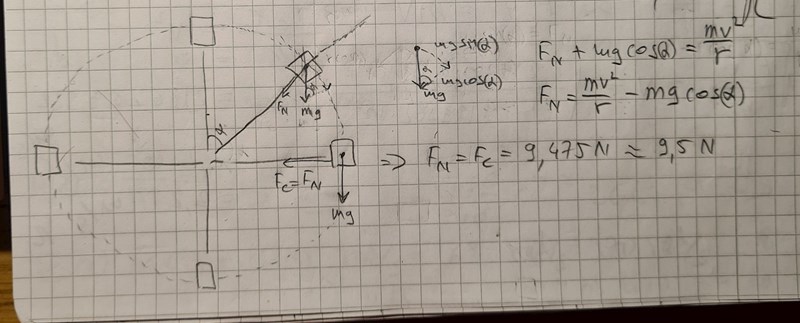 mg sin(α)
α
mg cos(α)
mg
F_N + mg cos(α) = mv/r
F_N = mv²/r - mg cos(α)
F_N
mg
α
F_C = F_N
mg
=> F_N = F_C = 9,475 N ≈ 9,5 N